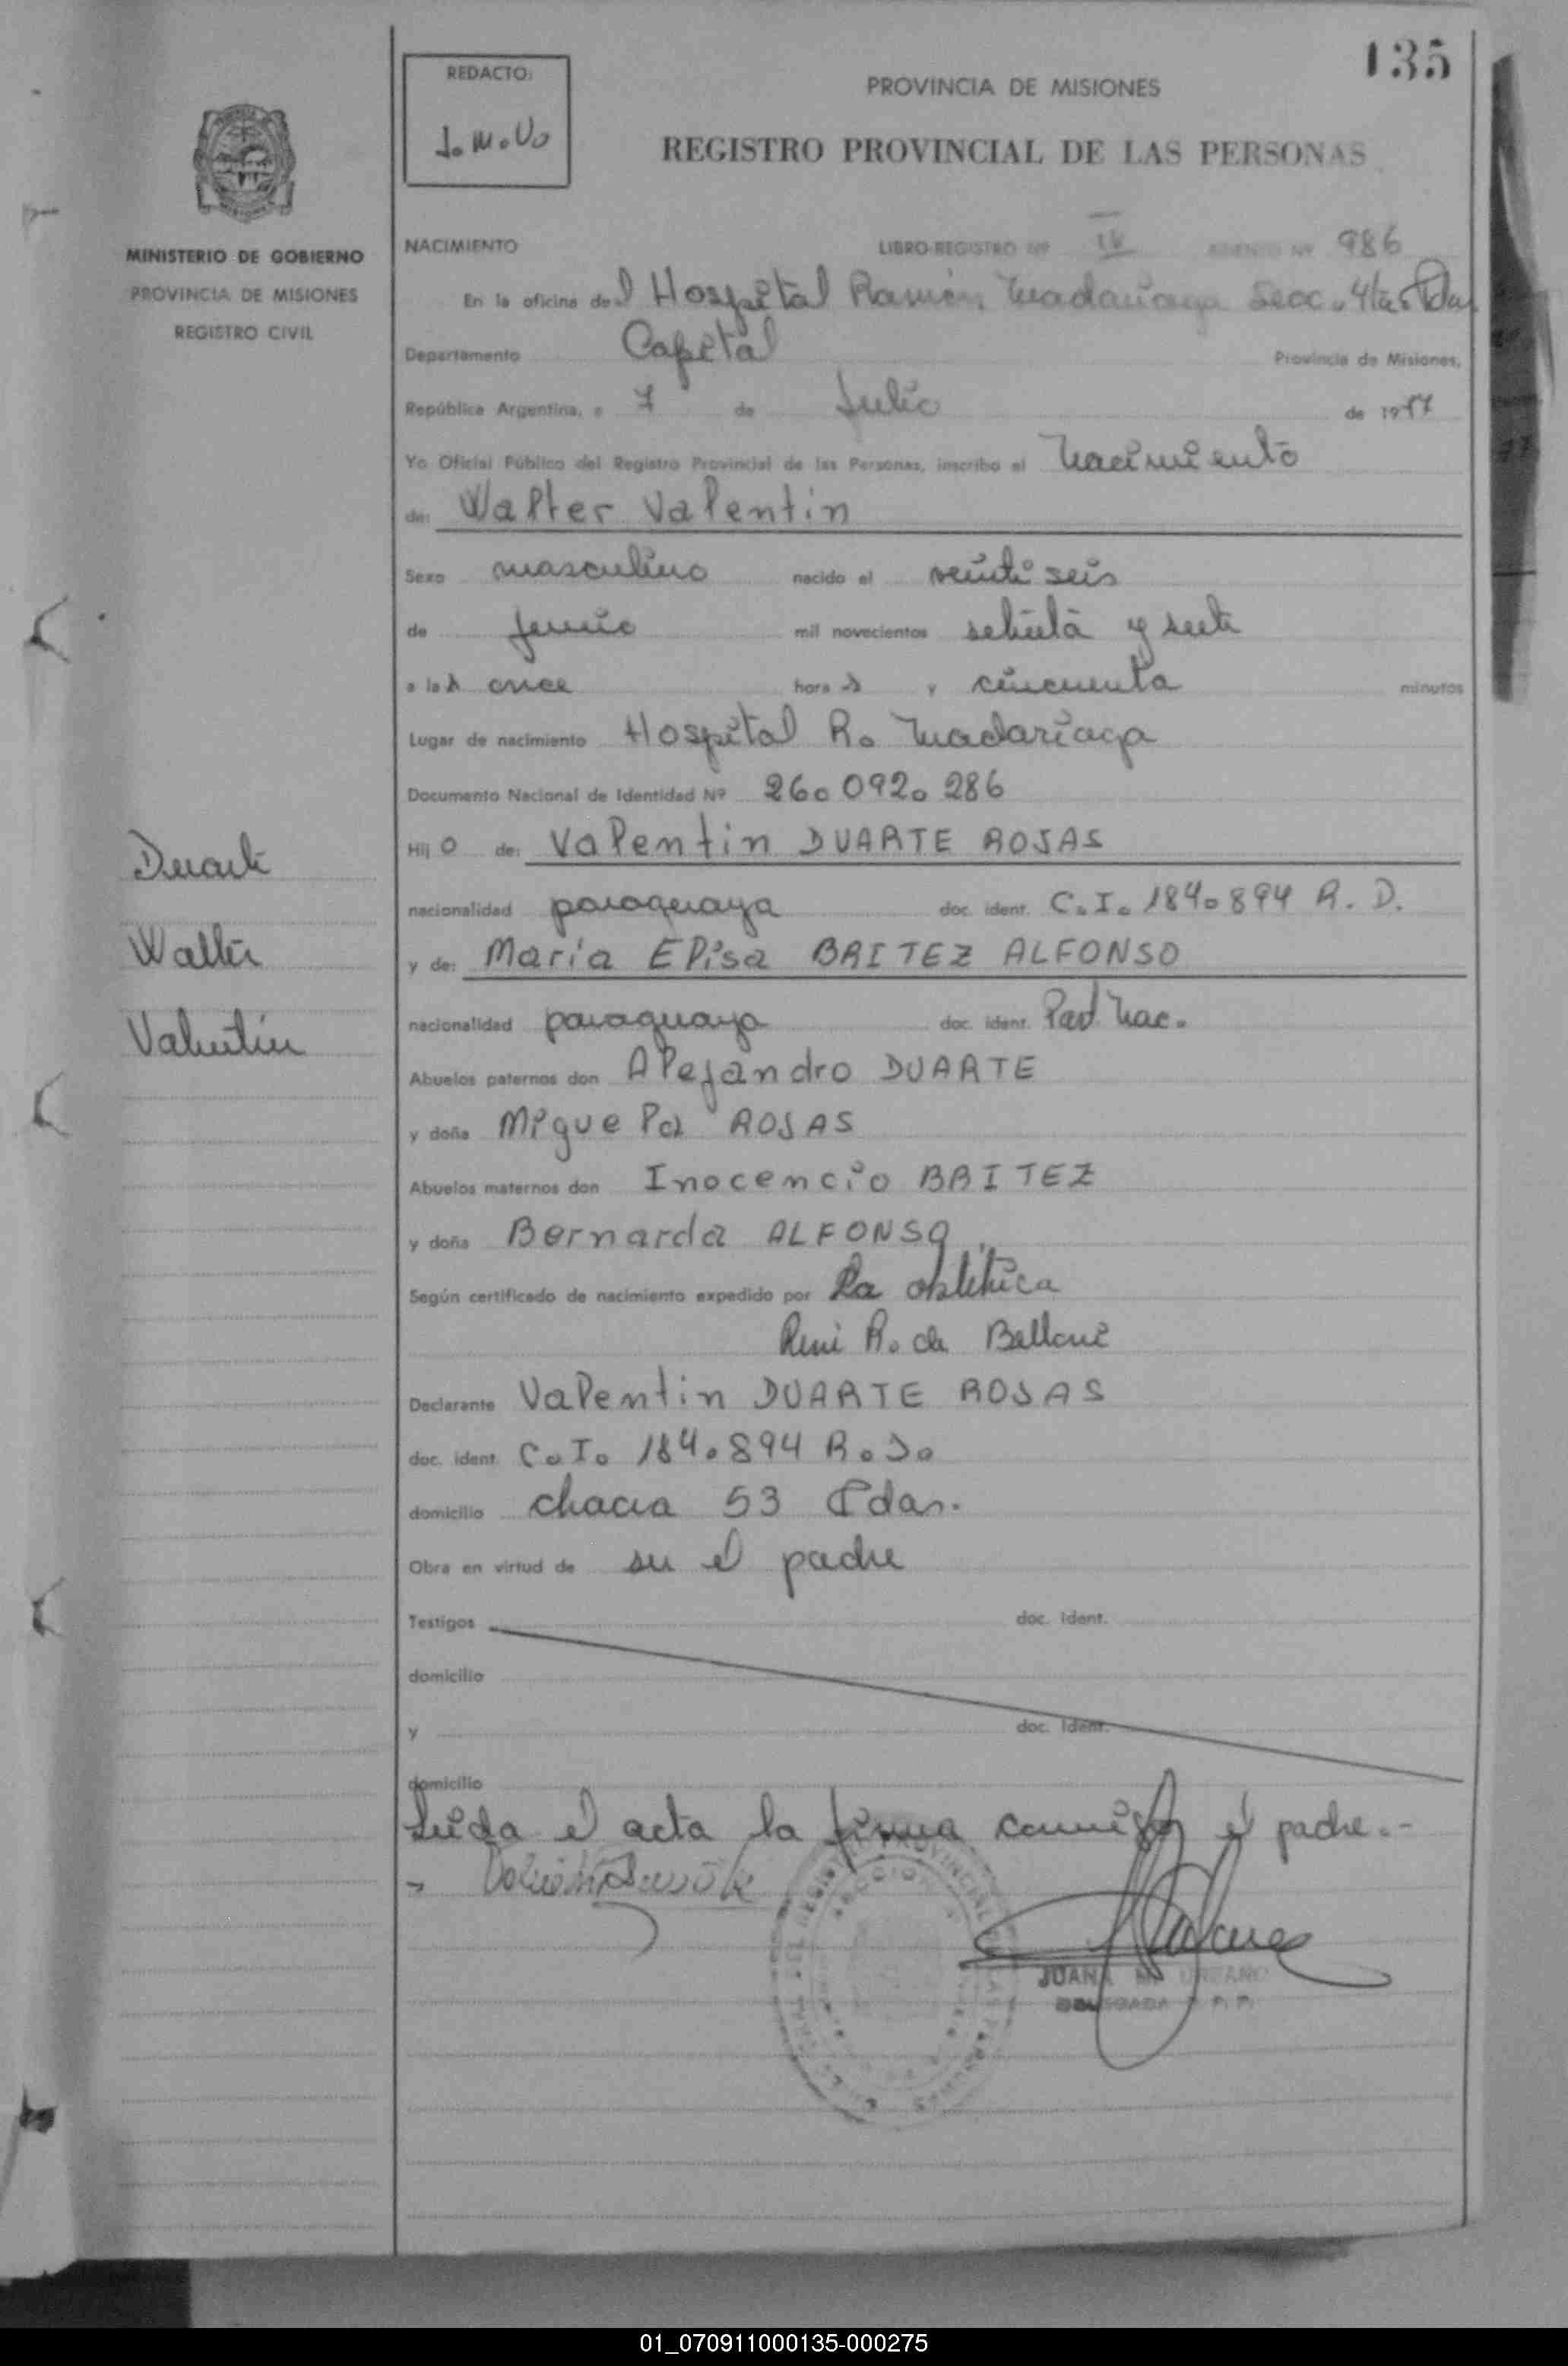 135
REDACTO:
J.M.U.
PROVINCIA DE MISIONES
REGISTRO PROVINCIAL DE LAS PERSONAS
MINISTERIO DE GOBIERNO
PROVINCIA DE MISIONES
REGISTRO CIVIL
NACIMIENTO LIBRO-REGISTRO Nº IV ASIENTO Nº 986
En la oficina del Hospital Ramón Madariaga Secc. 4ta. Pdas
Departamento Capital Provincia de Misiones,
República Argentina, a 7 de Julio de 1977
Yo Oficial Público del Registro Provincial de las Personas, inscribo el Nacimiento
de: Walter Valentin
Sexo masculino nacido el veinti seis
de junio mil novecientos setenta y siete
a las once horas y cincuenta minutos
Lugar de nacimiento Hospital R. Madariaga
Documento Nacional de Identidad Nº 26.092.286
Hijo de: Valentin DUARTE ROJAS
nacionalidad paraguaya doc. ident. C.I. 184.894 R. D.
y de: Maria Elisa BRITEZ ALFONSO
nacionalidad paraguaya doc. ident. Part Nac.
Abuelos paternos don Alejandro DUARTE
y doña Miguela ROJAS
Abuelos maternos don Inocencio BRITEZ
y doña Bernarda ALFONSO
Según certificado de nacimiento expedido por la obstétrica
R. de Belloni
Declarante Valentin DUARTE ROJAS
doc. ident. C.I. 184.894 R.D.
domicilio chacra 53 Pdas.
Obra en virtud de su el padre
Testigos doc. ident.
domicilio
y doc. ident.
domicilio
Leida el acta la firma conmigo el padre.-
Duarte
Walter
Valentin
JUANA M. URBANO
DELEGADA R. P. P.
01_070911000135-000275